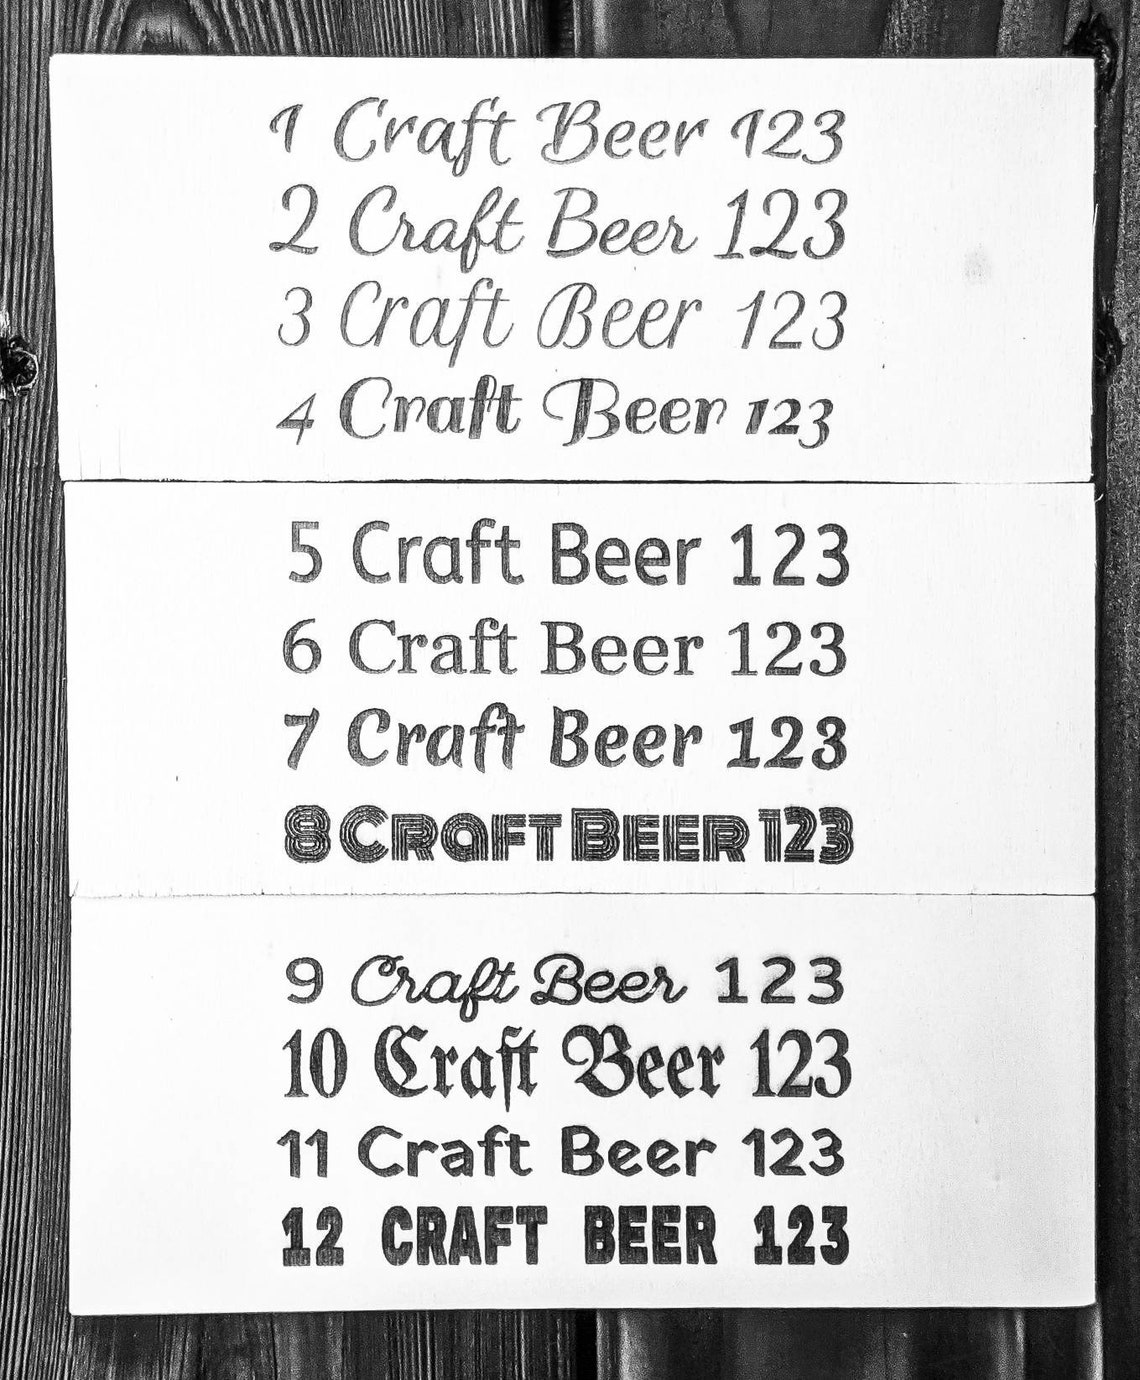 1 Craft Beer 123
2 Craft Beer 123
3 Craft Beer 123
4 Craft Beer 123
5 Craft Beer 123
6 Craft Beer 123
7 Craft Beer 123
8 Craft Beer 123
9 Craft Beer 123
10 Craft Beer 123
11 Craft Beer 123
12 CRAFT BEER 123